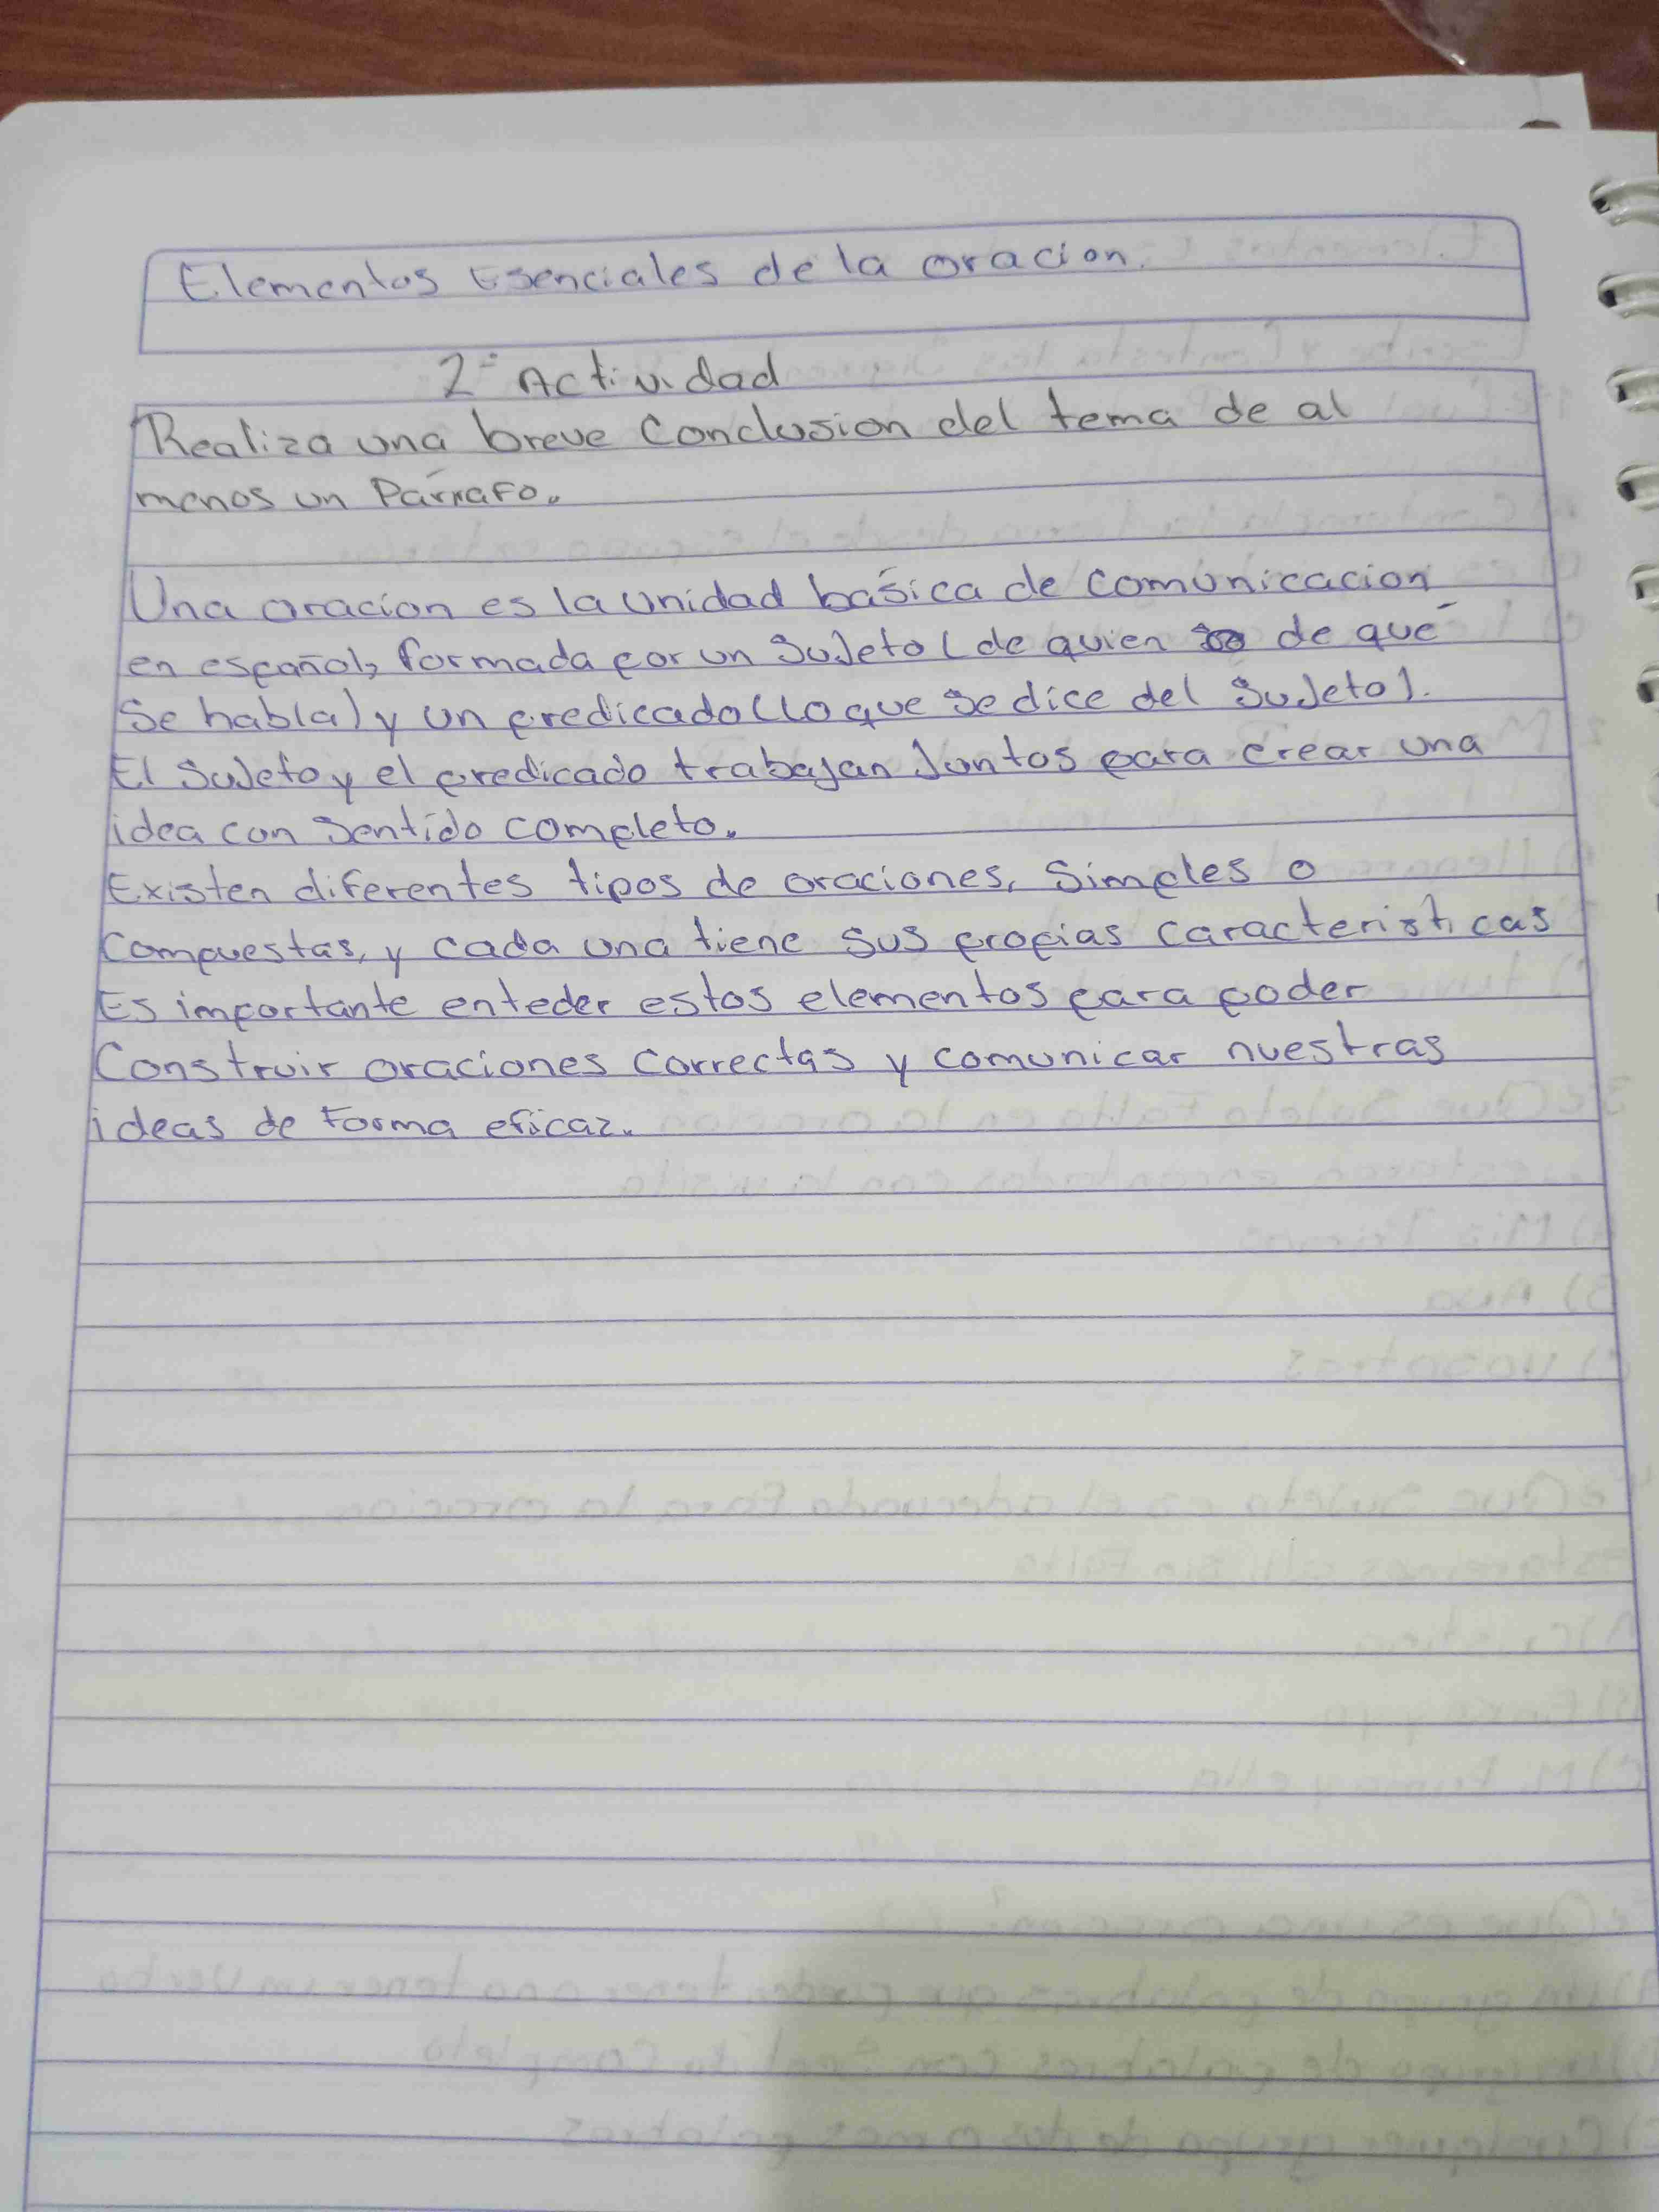 Elementos Esenciales de la oracion.
2° Actividad
Realiza una breve Conclusion del tema de al
menos un Párrafo.
Una oracion es la unidad básica de comunicacion
en español, formada por un Sujeto (de quien de qué
Se habla) y un predicado (lo que se dice del Sujeto).
El Sujeto y el predicado trabajan Juntos para crear una
idea con Sentido completo.
Existen diferentes tipos de oraciones, Simples o
Compuestas, y cada una tiene sus propias caracteristicas
Es importante enteder estos elementos para poder
Construir oraciones correctas y comunicar nuestras
ideas de forma eficaz.